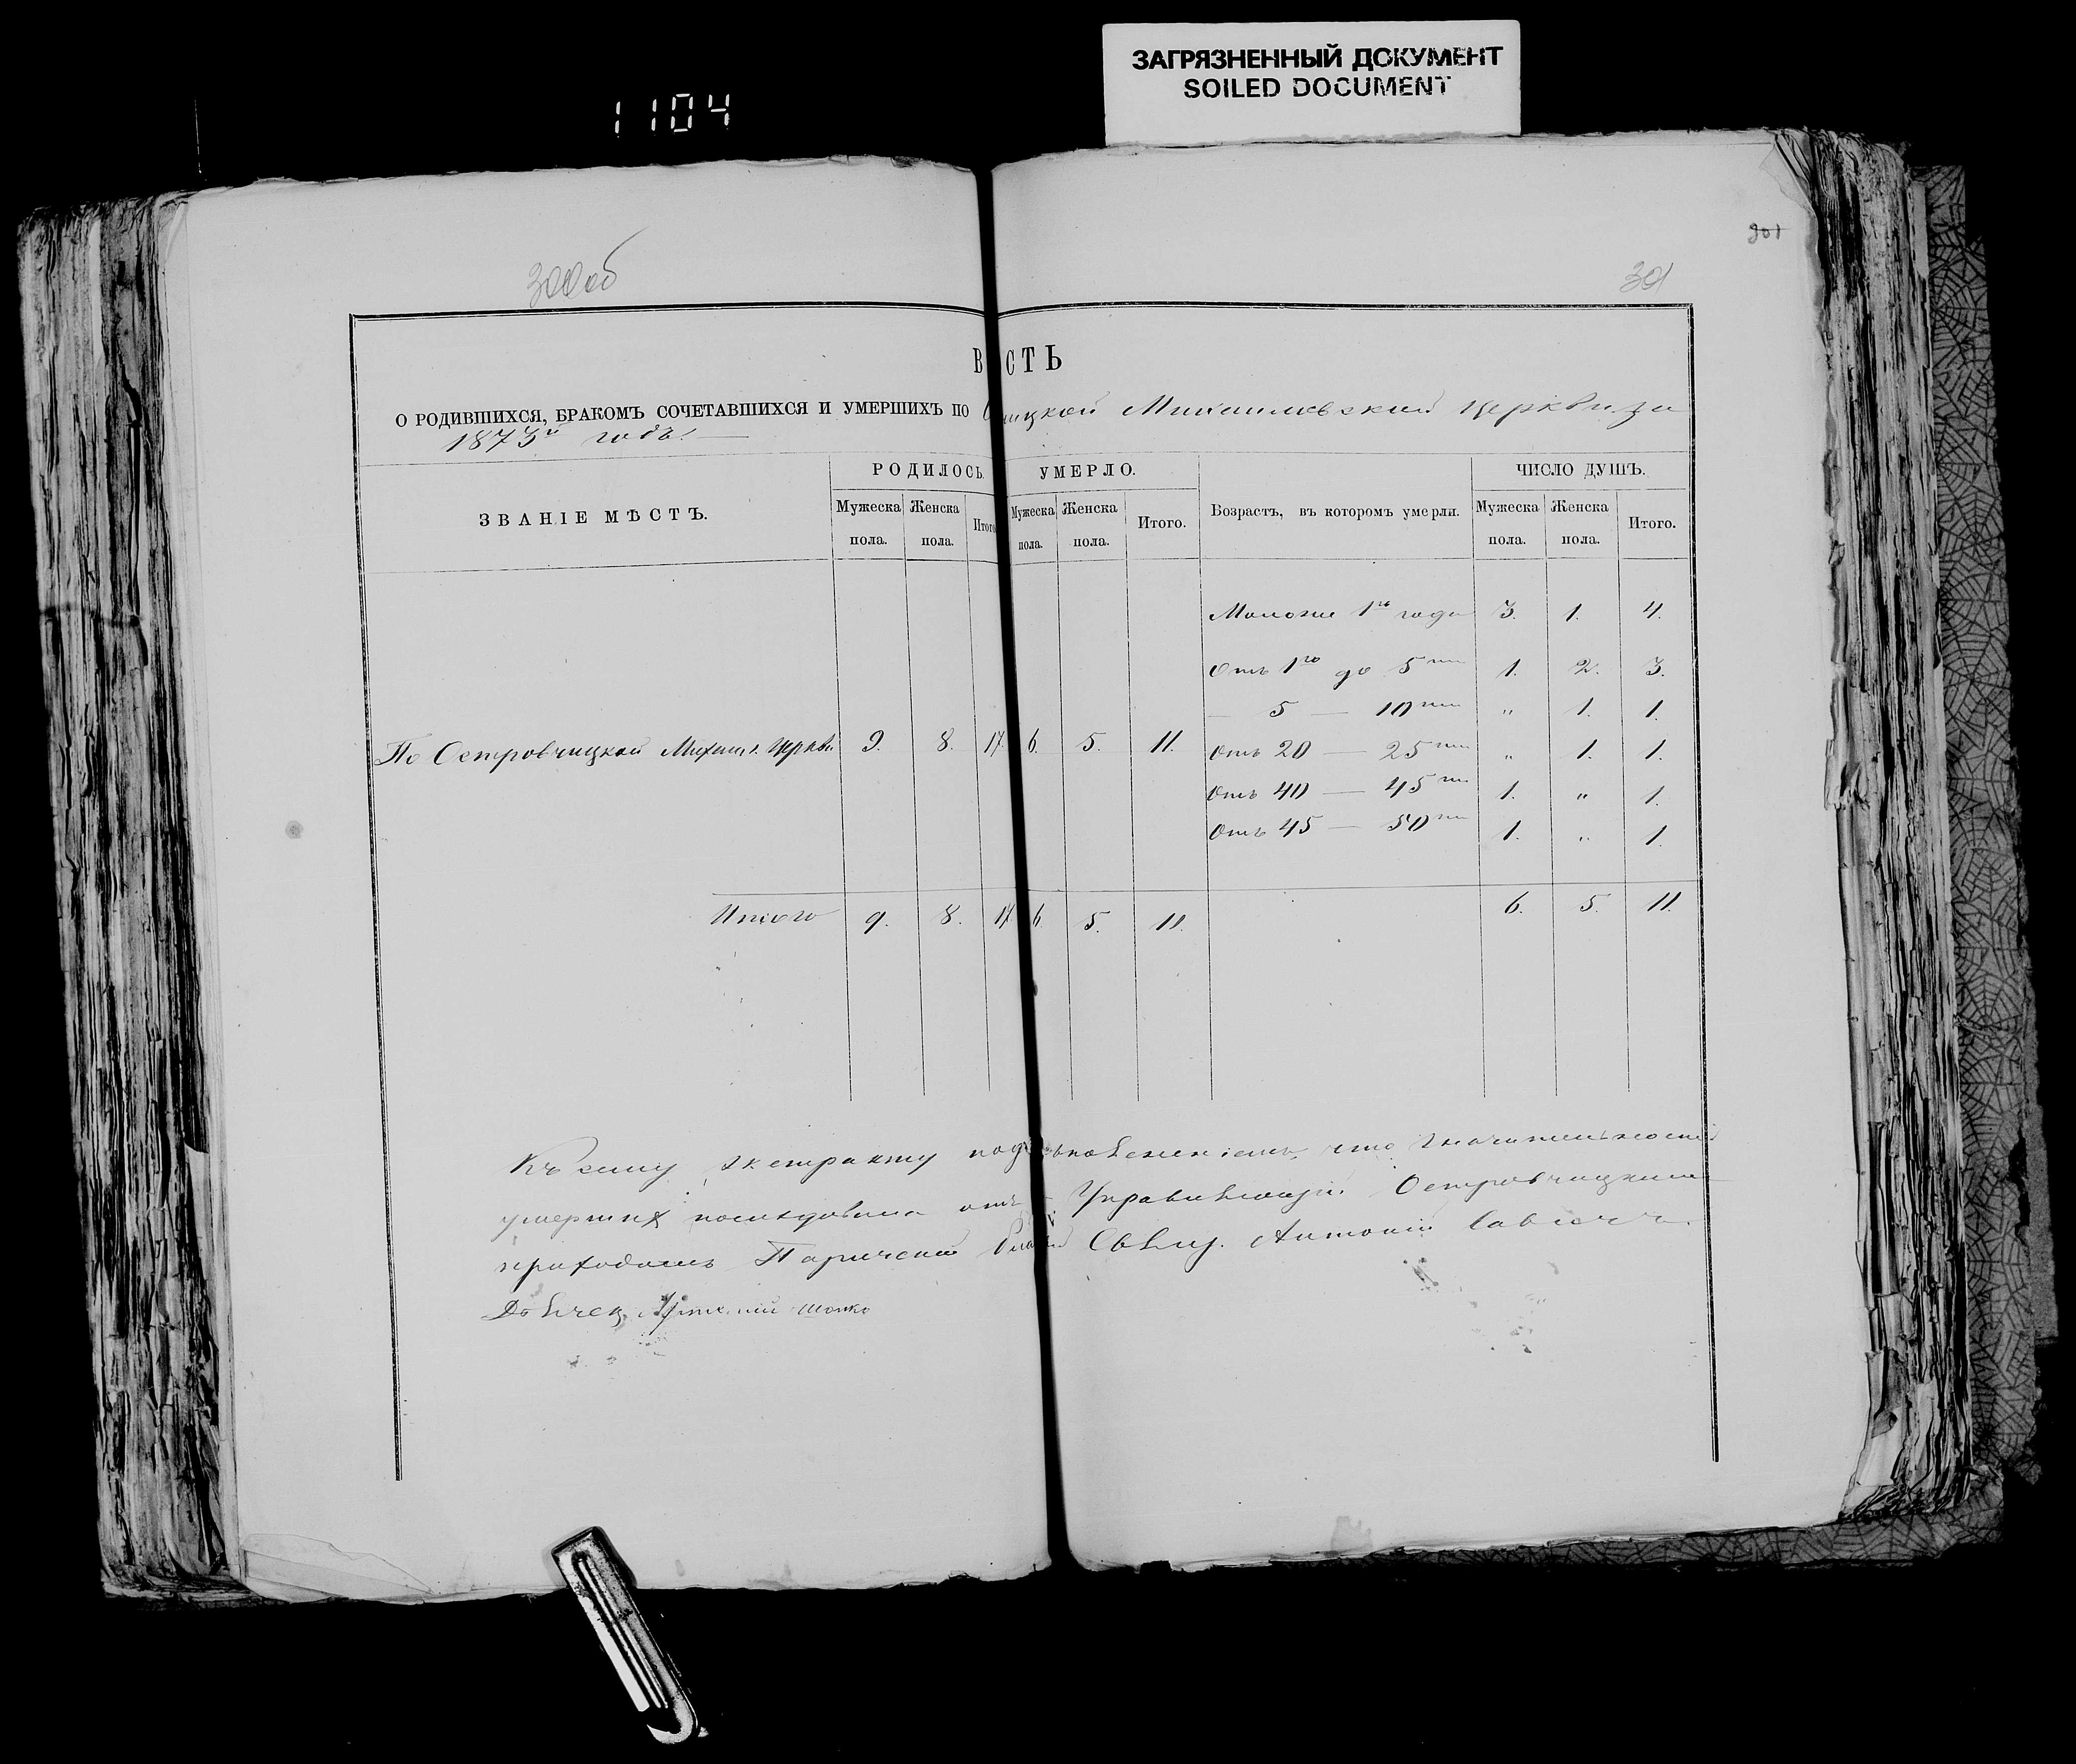 ЗАГРЯЗНЕННЫЙ ДОКУМЕНТ
SOILED DOCUMENT
1104
301
300об
301
В СТЬ
О РОДИВШИХСЯ, БРАКОМЪ СОЧЕТАВШИХСЯ И УМЕРШИХЪ ПО ицкой Михаиловской церкви за
1873й годъ.—
ЗВАНІЕ МѢСТЪ. РОДИЛОСЬ. УМЕРЛО. Возрастъ, въ которомъ умерли. ЧИСЛО ДУШЪ.
Мужеска пола. Женска пола. Итого Мужеска пола. Женска пола. Итого. Мужеска пола. Женска пола. Итого.
Моложе 1го года 3. 1. 4.
Отъ 1го до 5ти 1. 2. 3.
— 5 — 10ти " 1. 1.
По Островчицкой Михаил. Церкви 9. 8. 17. 6. 5. 11. Отъ 20 — 25ти " 1. 1.
Отъ 40 — 45ти 1. " 1.
Отъ 45 — 50ти 1. " 1.
Итого 9. 8. 17. 6. 5. 11. 6. 5. 11.
Къ сему экстракту что
умершихъ послѣдовала отъ Управляющій Островчицкимъ
приходомъ Паричской Свящ. Антоній Савичъ.